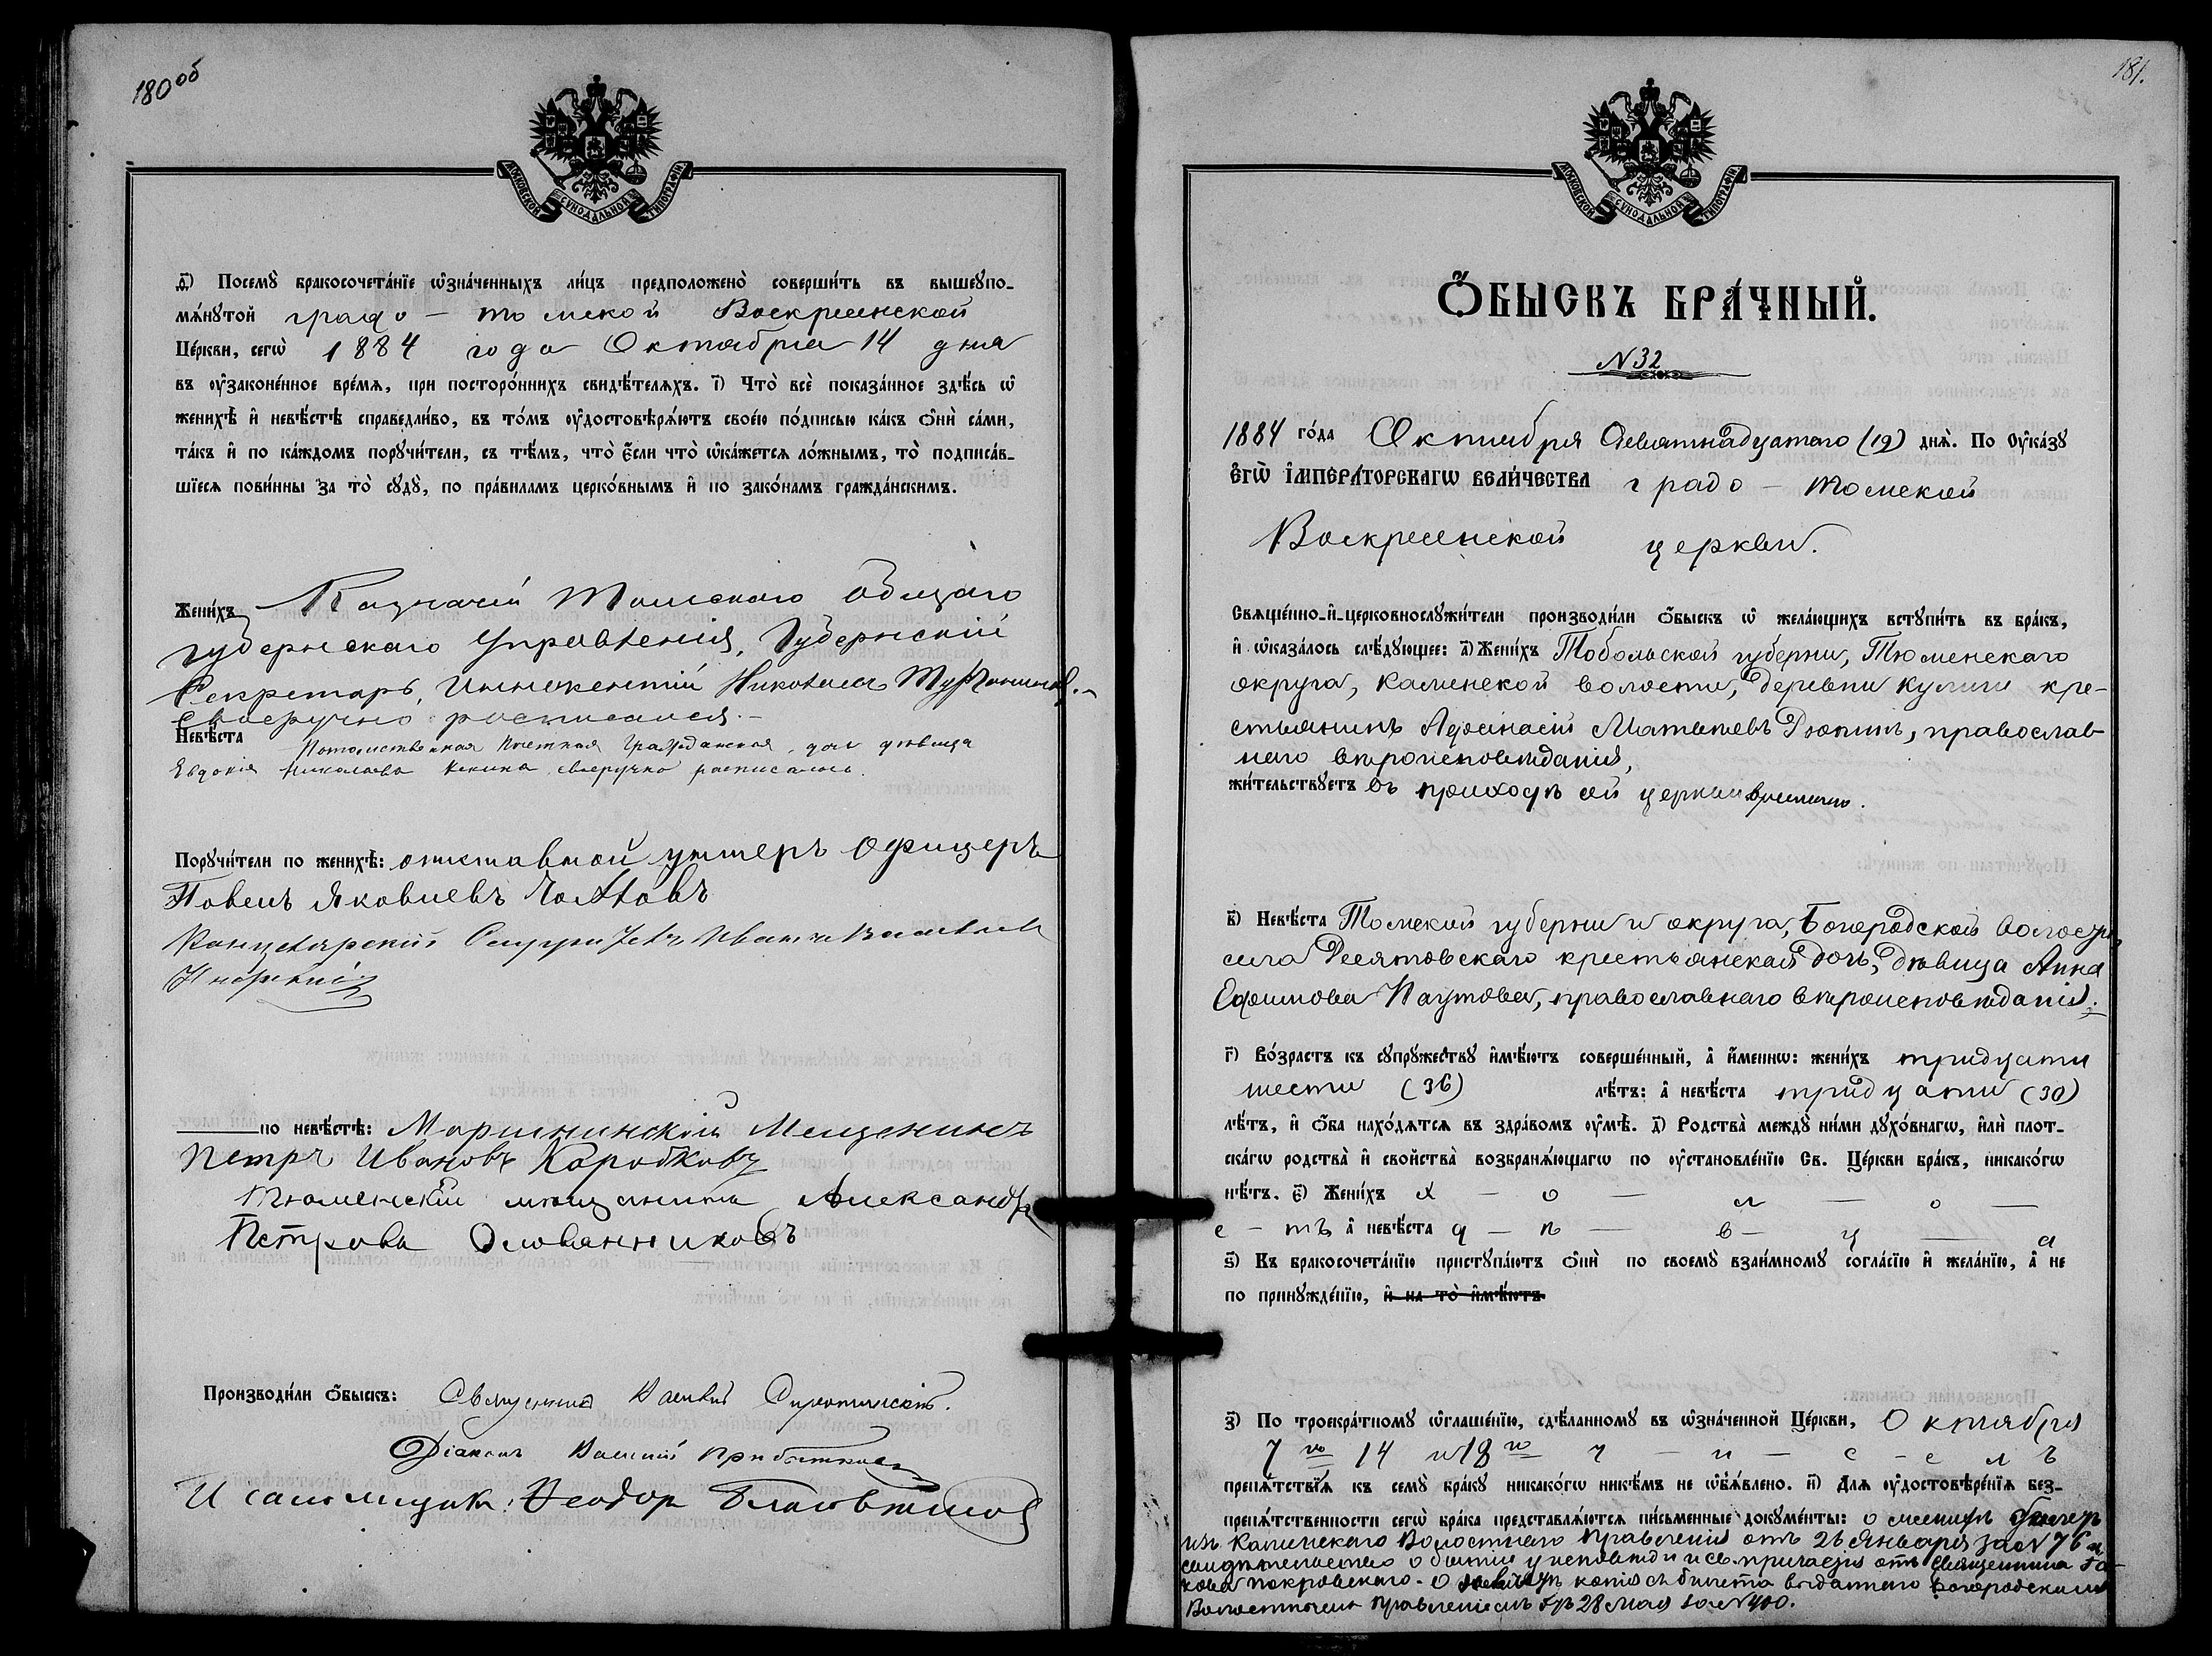 180 об
МОСКОВСКОЙ СѴНОДАЛЬНОЙ ТИПОГРАФІИ
ѳ҃) Посемꙋ̀ бракосочета́нїе ѡ҆зна́ченныхъ ли́цъ предположено̀ соверши́ть въ вышеꙋпо-
мѧ́нꙋтой градо - томской Воскресенской
Це́ркви, сегѡ̀ 1884 года Октября 14 дня
въ ᲂу҆законе́нное вре́мѧ, при посторо́ннихъ свидѣ́телѧхъ. і҃) Что̀ всѐ пока́занное здѣ́сь ѡ҆
женихѣ̀ и҆ невѣ́стѣ справедли́во, въ то́мъ ᲂу҆достовѣрѧ́ютъ свое́ю по́дписью ка́къ ѻ҆нѝ са́ми,
та́къ и҆ по ка́ждомъ порꙋчи́тели, съ тѣ́мъ, что̀ є҆́сли что̀ ѡ҆ка́жетсѧ ло́жнымъ, то̀ подписа́в-
шїесѧ пови́нны за то̀ сꙋдꙋ̀, по пра́виламъ церко́внымъ и҆ по зако́намъ гражда́нскимъ.
Жени́хъ Казначей Томскаго Общаго
губернскаго Управленія, Губернскій
Секретарь, Иннокентій Николаевъ
своеручно росписался.-
Невѣ́ста Потомственная Почетная Гражданская, дочь дѣвица
Евдокія Николаева своеручно расписалась.
Порꙋчи́тели по женихѣ̀: отставной унтеръ Офицеръ
Павелъ Яковлевъ
Канцелярскій Служитель Иванъ Васильевъ
по невѣ́стѣ: Маріинскій Мещенинъ
Петръ Ивановъ Коробковъ
Тюменскій мѣщанинъ Александръ
Петровъ Оловянниковъ
Производи́ли ѻ҆́быскъ: Священникъ Василій Сиротинскій.
Діаконъ Василій Прибытковъ
И саломщик: Ѳеодор
181.
МОСКОВСКОЙ СѴНОДАЛЬНОЙ ТИПОГРАФІИ
Ѻ҆́БЫСКЪ БРА́ЧНЫЙ.
N 32
1884 го́да Октября Девятнадцатаго (19) днѧ̀. По Оу҆ка́зꙋ
Є҆ГѠ̀ І҆МПЕРА́ТОРСКАГѠ ВЕЛИ́ЧЕСТВА градо - томской
Воскресенской церкви.
Свѧще́нно-и҆-церковнослꙋжи́тели производи́ли ѻ҆́быскъ ѡ҆ жела́ющихъ встꙋпи́ть въ бра́къ,
и҆ ѡ҆каза́лось слѣ́дꙋющее: а҃) Жени́хъ Тобольской губерни, Тюменскаго
округа, Каменской волости, деревни Кулиги кре-
стьянинъ Афонасій Матвѣевъ Дюпинъ, православ-
наго вѣроисповѣданія,
жи́тельствꙋетъ въ приходѣ сей церкви временно.
в҃) Невѣ́ста Томской губерни и округа, Богородской волости,
села Десятовскаго крестьянская дочь, дѣвица Анна
Ефимова Паутова, православнаго вѣроисповѣданія.
г҃) Во́зрастъ къ сꙋпрꙋ́жествꙋ и҆мѣ́ютъ соверше́нный, а҆ и҆́меннѡ: жени́хъ тридцати
шести (36) лѣ́тъ: а҆ невѣ́ста тридцати (30)
лѣ́тъ, и҆ ѻ҆́ба нахо́дѧтсѧ въ здра́вомъ ᲂу҆мѣ̀. д҃) Родства̀ междꙋ̀ ни́ми дꙋхо́внагѡ, и҆лѝ плот-
ска́гѡ родства̀ и҆ свойства̀ возбранѧ́ющагѡ по ᲂу҆становле́нїю Св. Це́ркви бра́къ, никако́гѡ
нѣ́тъ. є҃) Жени́хъ х - о - л - о -
с - тъ, а҆ невѣ́ста д - ѣ - в - и ц а
ѕ҃) Къ бракосочета́нїю пристꙋпа́ютъ ѻ҆нѝ по своемꙋ̀ взаи́мномꙋ согла́сїю и҆ жела́нїю, а҆ не
по принꙋжде́нїю, и҆ на то̀ и҆мѣ́ютъ
з҃) По троекра́тномꙋ ѡ҆глаше́нїю, сдѣ́ланномꙋ въ ѡ҆зна́ченной Це́ркви, Октября
7го 14 и 18го ч - и - с - е л ъ
препѧ́тствїѧ къ семꙋ̀ бра́кꙋ никако́гѡ никѣ́мъ не ѡ҆б̾ѧ́влено. и҃) Длѧ̀ ᲂу҆достовѣре́нїѧ без-
препѧ́тственности сегѡ̀ бра́ка представлѧ́ютсѧ пи́сьменные докꙋме́нты: о женихѣ билетъ
изъ Каменскаго Волостнаго Правленія отъ 26 Января за N 76 и
свидѣтельство о бытіи у исповѣди и св. причастія отъ Священника Іа-
кова Покровскаго. - О невѣстѣ копія съ билета выданнаго Богородскимъ
Волостнымъ Правленіемъ 28 Мая за N 400.